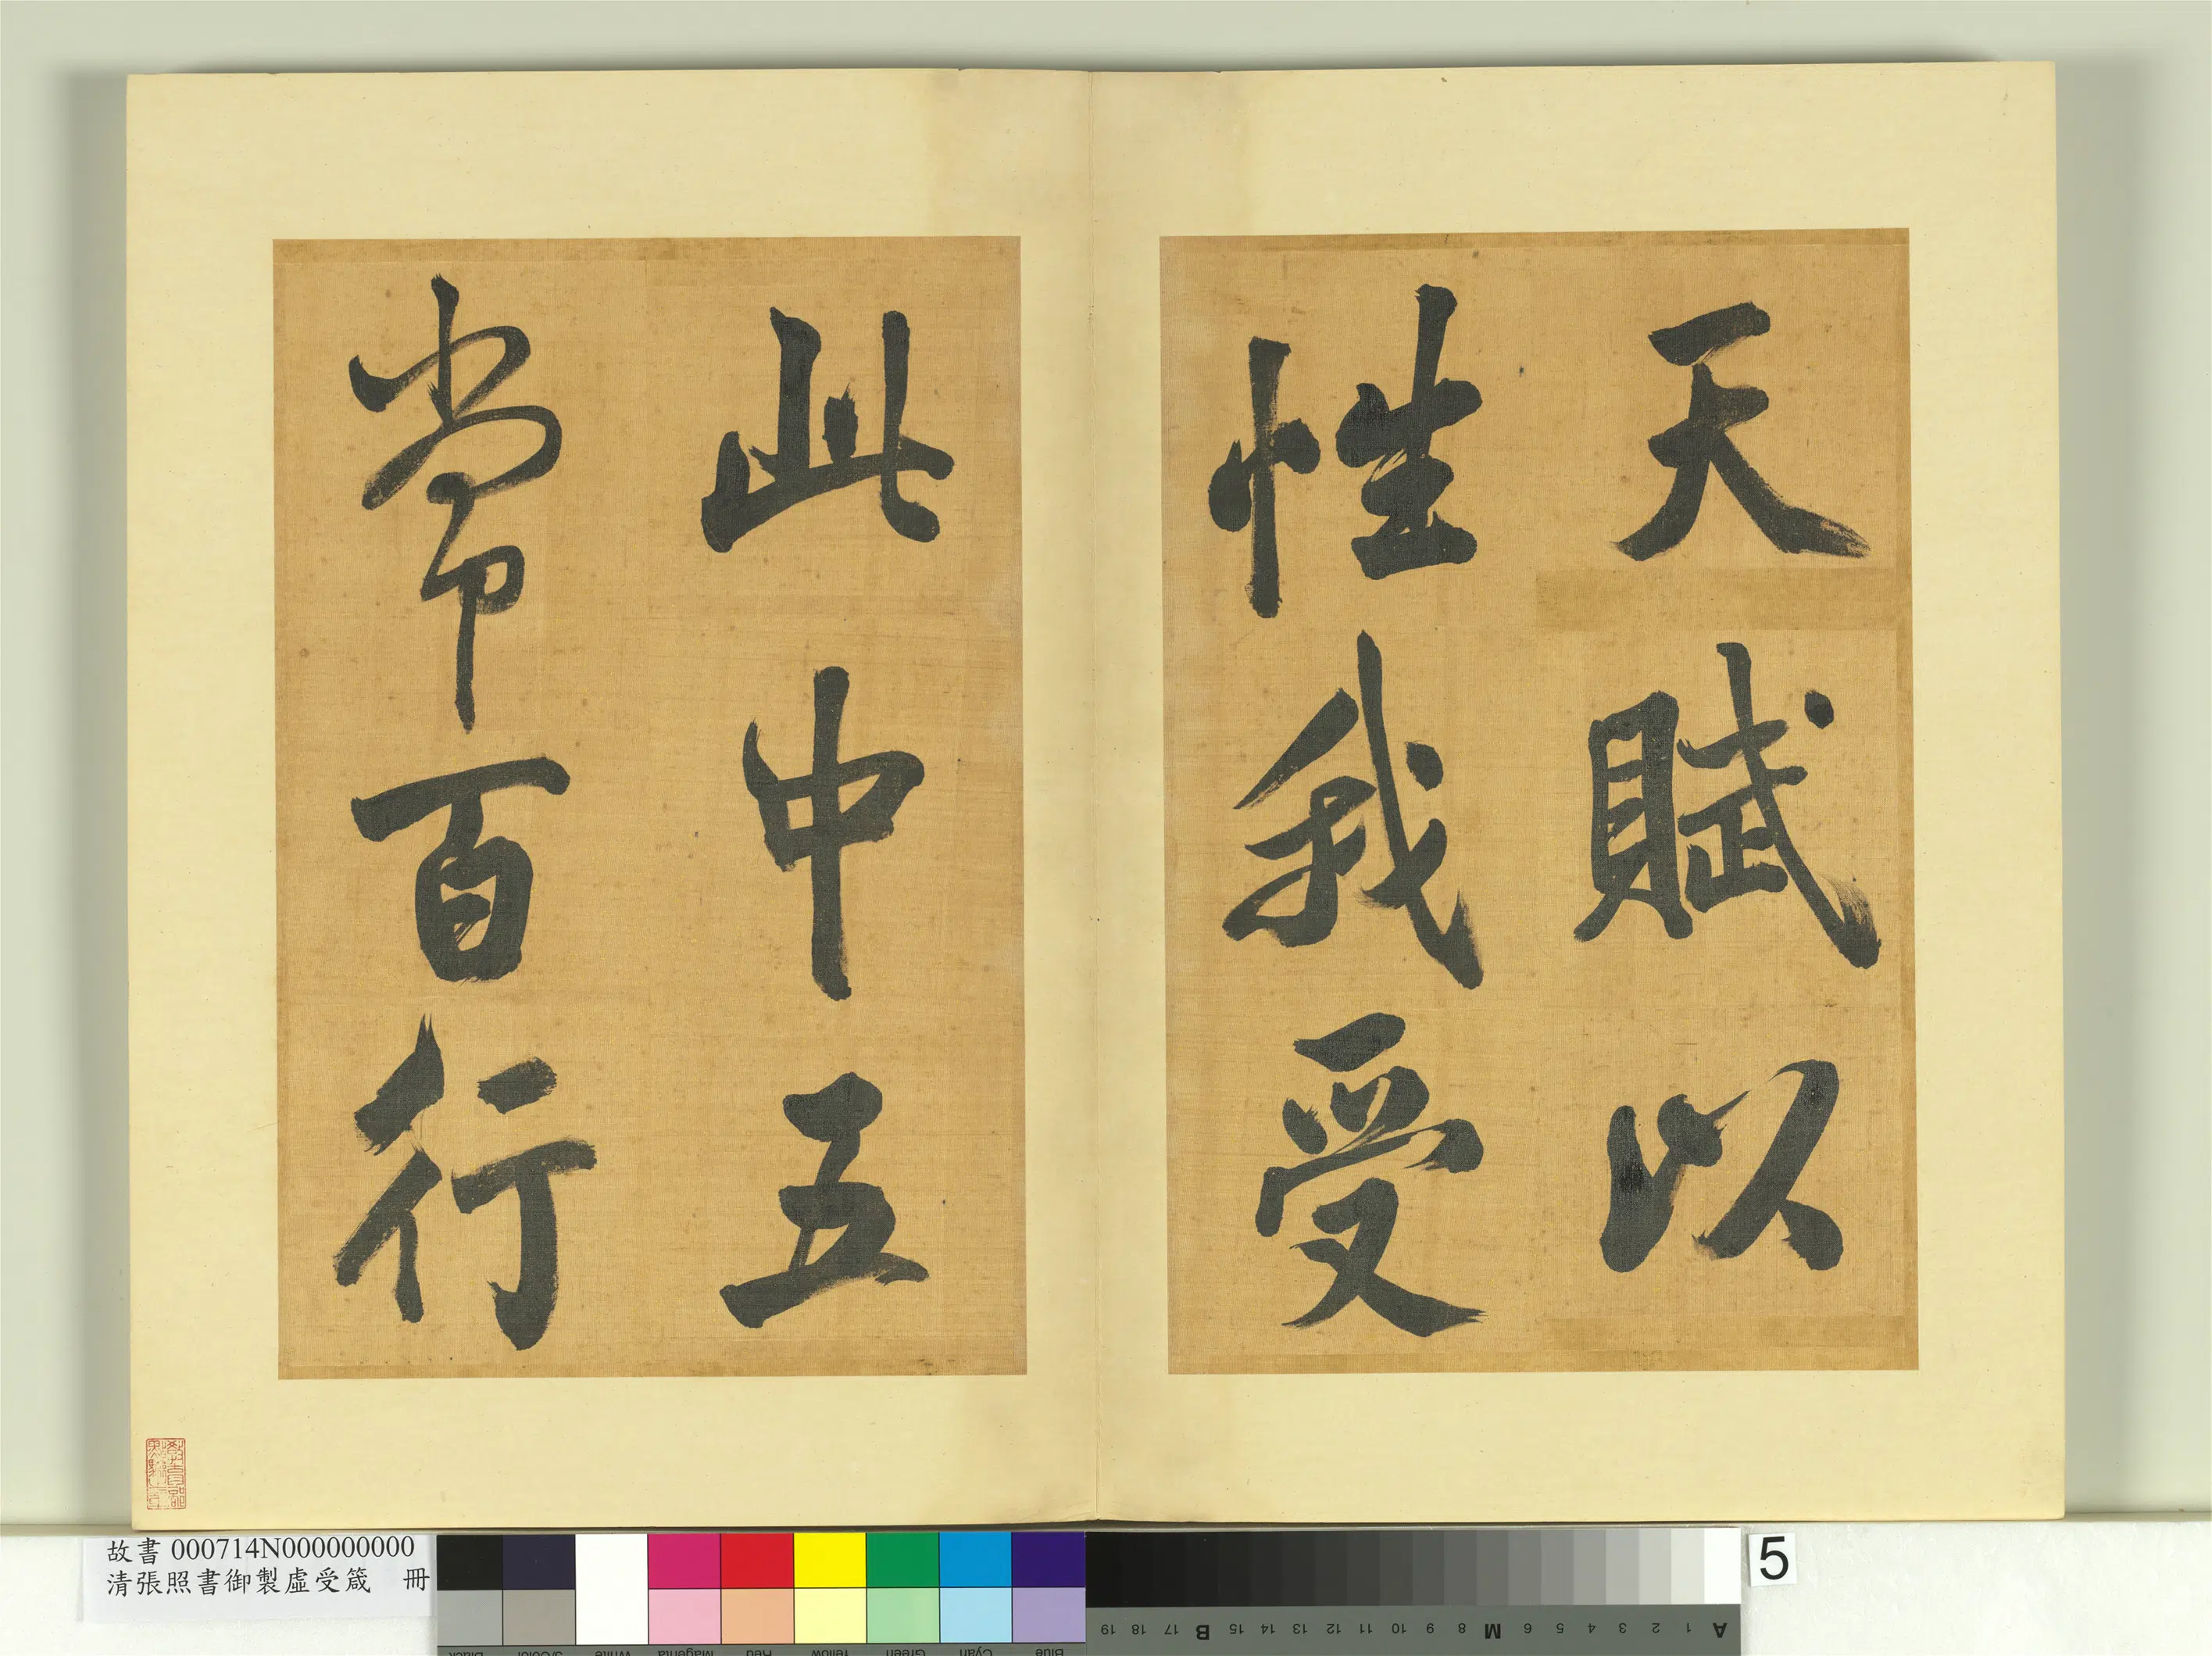 天賦以
性我受
此中五
常百行
故書 000714N000000000
清張照書御製虛受箴 冊
5
Black 3/Color White Magenta Red Yellow Green Cyan Blue
19 18 17 B 15 14 13 12 11 10 9 8 M 6 5 4 3 2 1 A